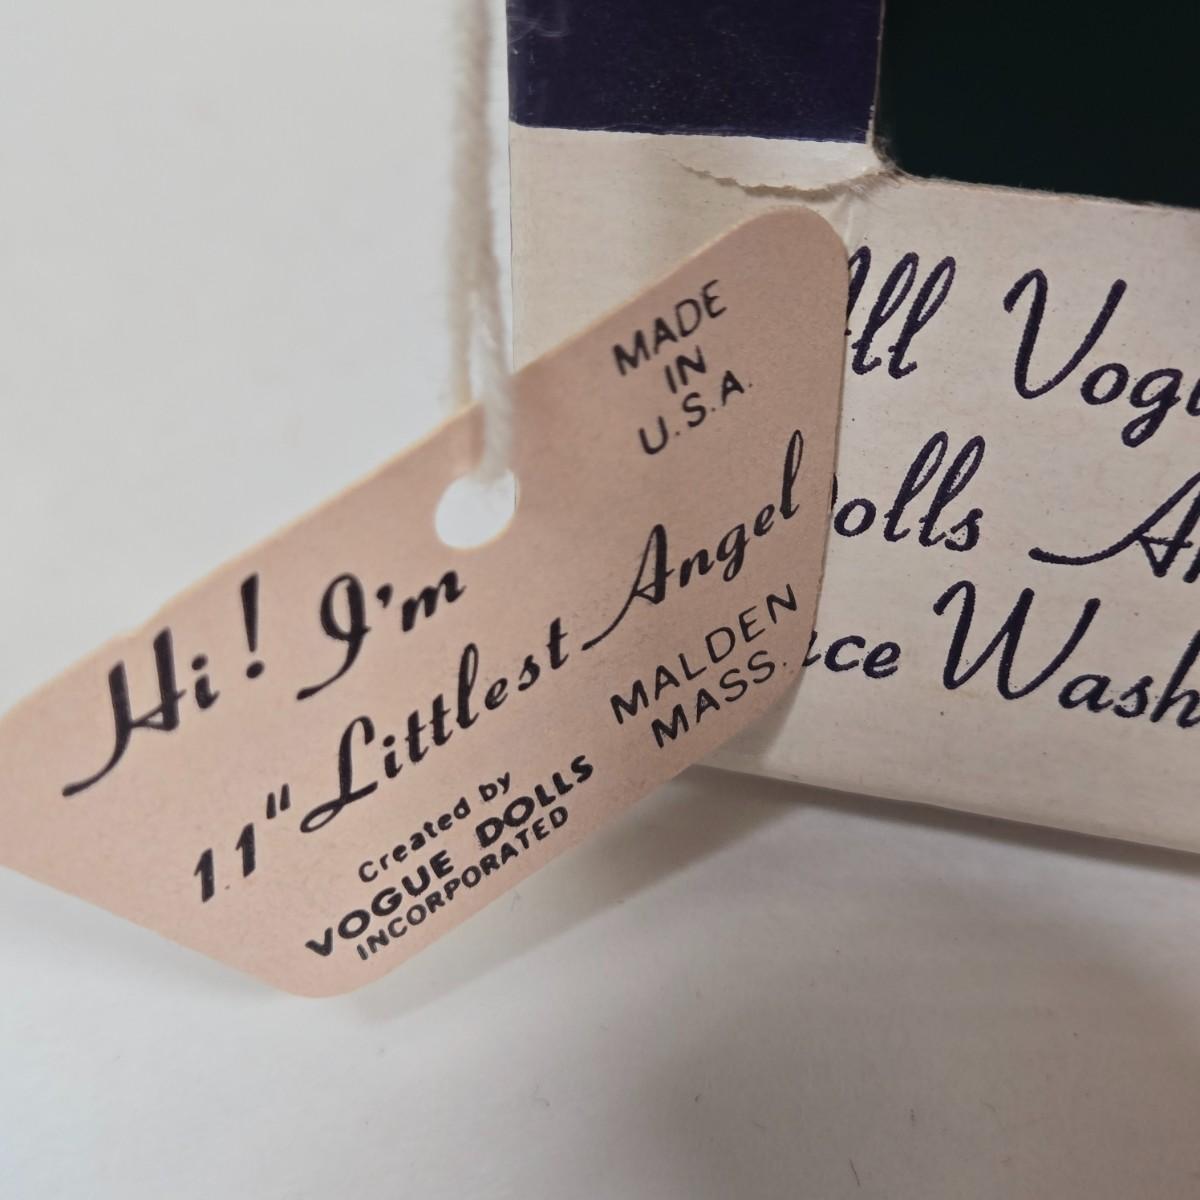 MADE
IN
U.S.A.
Hi! I'm
11" Littlest Angel
Created by
VOGUE DOLLS
INCORPORATED
MALDEN
MASS.
All Vogu
Dolls A
ce Wash